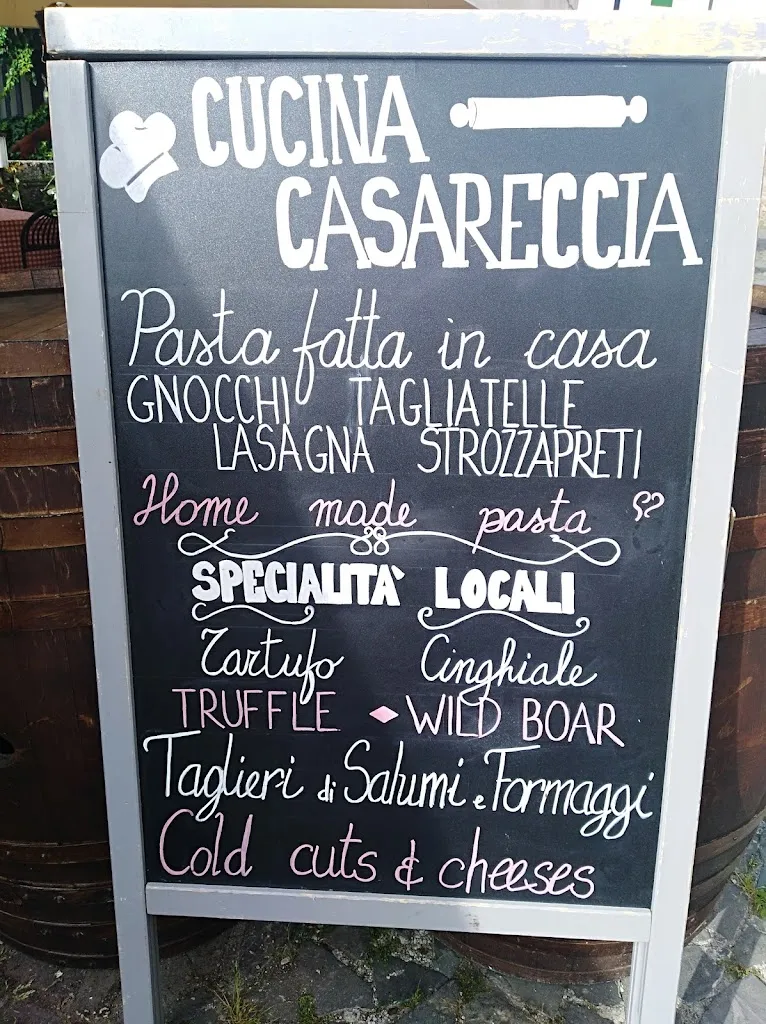 CUCINA
CASARECCIA
Pasta fatta in casa
GNOCCHI TAGLIATELLE
LASAGNA STROZZAPRETI
Home made pasta
SPECIALITÀ LOCALI
Tartufo Cinghiale
TRUFFLE ♦ WILD BOAR
Taglieri di Salumi e Formaggi
Cold cuts & cheeses